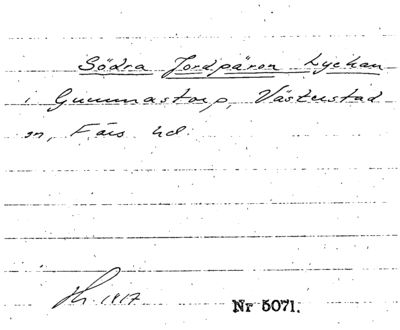 Södra Jordpäron Lyckan
i Gummastorp, Västerstad
sn, Färs hd.
1917
Nr 5071.